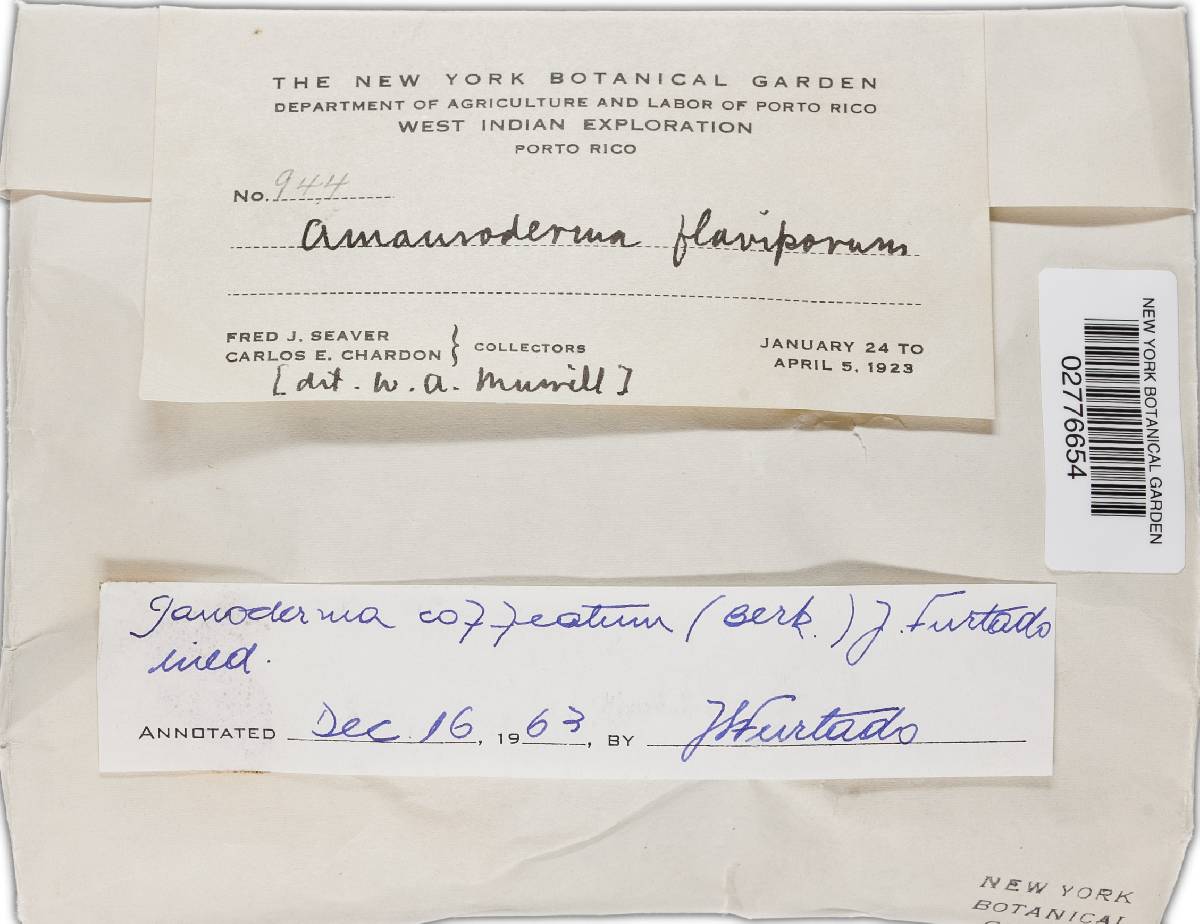 THE NEW YORK BOTANICAL GARDEN
DEPARTMENT OF AGRICULTURE AND LABOR OF PORTO RICO
WEST INDIAN EXPLORATION
PORTO RICO
No. 944
Amauroderma flaviporum
FRED J. SEAVER
CARLOS E. CHARDON } COLLECTORS
JANUARY 24 TO
APRIL 5, 1923
[det. W. A. Murrill]
NEW YORK BOTANICAL GARDEN
02776654
Ganoderma coffeatum (Berk.) J. Furtado
ined.
ANNOTATED Dec 16, 1963, BY JSFurtado
NEW YORK
BOTANICAL